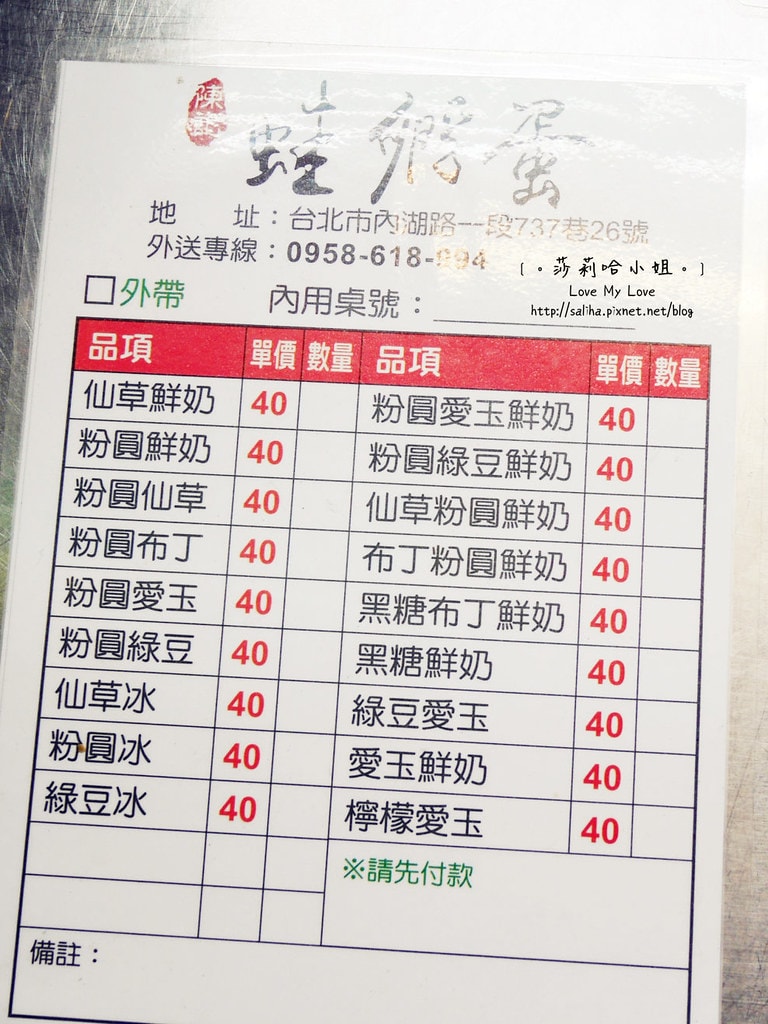 陳記
蛙鄉蛋
地 址：台北市內湖路一段737巷26號
外送專線：0958-618-994
[。莎莉哈小姐。]
Love My Love
http://saliha.pixnet.net/blog
□外帶 內用桌號：
品項 單價 數量 品項 單價 數量
仙草鮮奶 40 粉圓愛玉鮮奶 40
粉圓鮮奶 40 粉圓綠豆鮮奶 40
粉圓仙草 40 仙草粉圓鮮奶 40
粉圓布丁 40 布丁粉圓鮮奶 40
粉圓愛玉 40 黑糖布丁鮮奶 40
粉圓綠豆 40 黑糖鮮奶 40
仙草冰 40 綠豆愛玉 40
粉圓冰 40 愛玉鮮奶 40
綠豆冰 40 檸檬愛玉 40
※請先付款
備註：